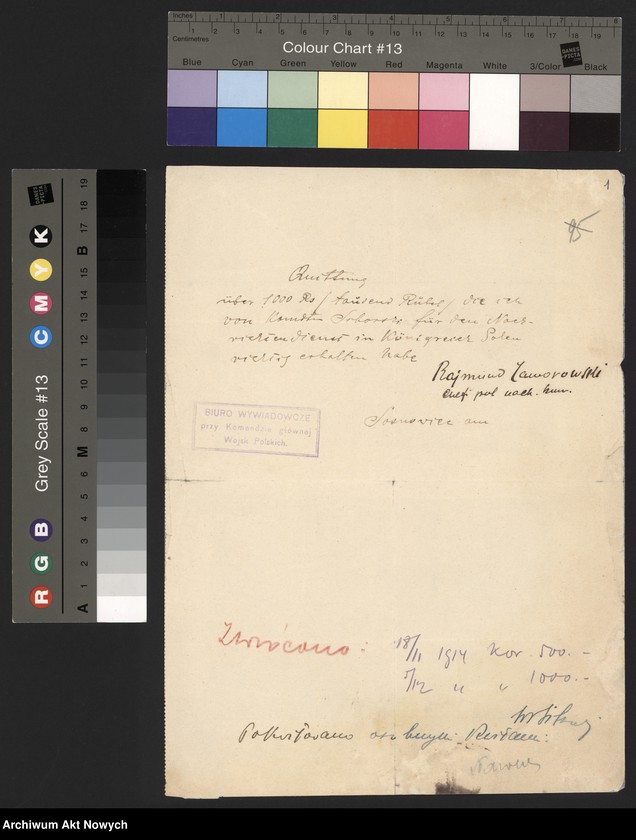 Inches 1 2 3 4 5 6 7 8
Centimetres 1 2 3 4 5 6 7 8 9 10 11 12 13 14 15 16 17 18 19
Colour Chart #13
DANES PICTA
Blue Cyan Green Yellow Red Magenta White 3/Color Black
Grey Scale #13
R G B C M Y K
A 1 2 3 4 5 6 M 8 9 10 11 12 13 14 15 B 17 18 19
1
Quittung
über 1000 Rb (tausend Rubel) die ich
von für den Nach-
richtendienst in Königreich Polen
richtig erhalten habe
Rajmund Jaworowski
chef pol nach. kom.
Sosnowiec am
BIURO WYWIADOWCZE
przy Komendzie głównej
Wojsk Polskich.
Zwrócono: 18/11 1914 Kor 500.-
5/12 " " 1000.-
Pokwitowano osobnymi